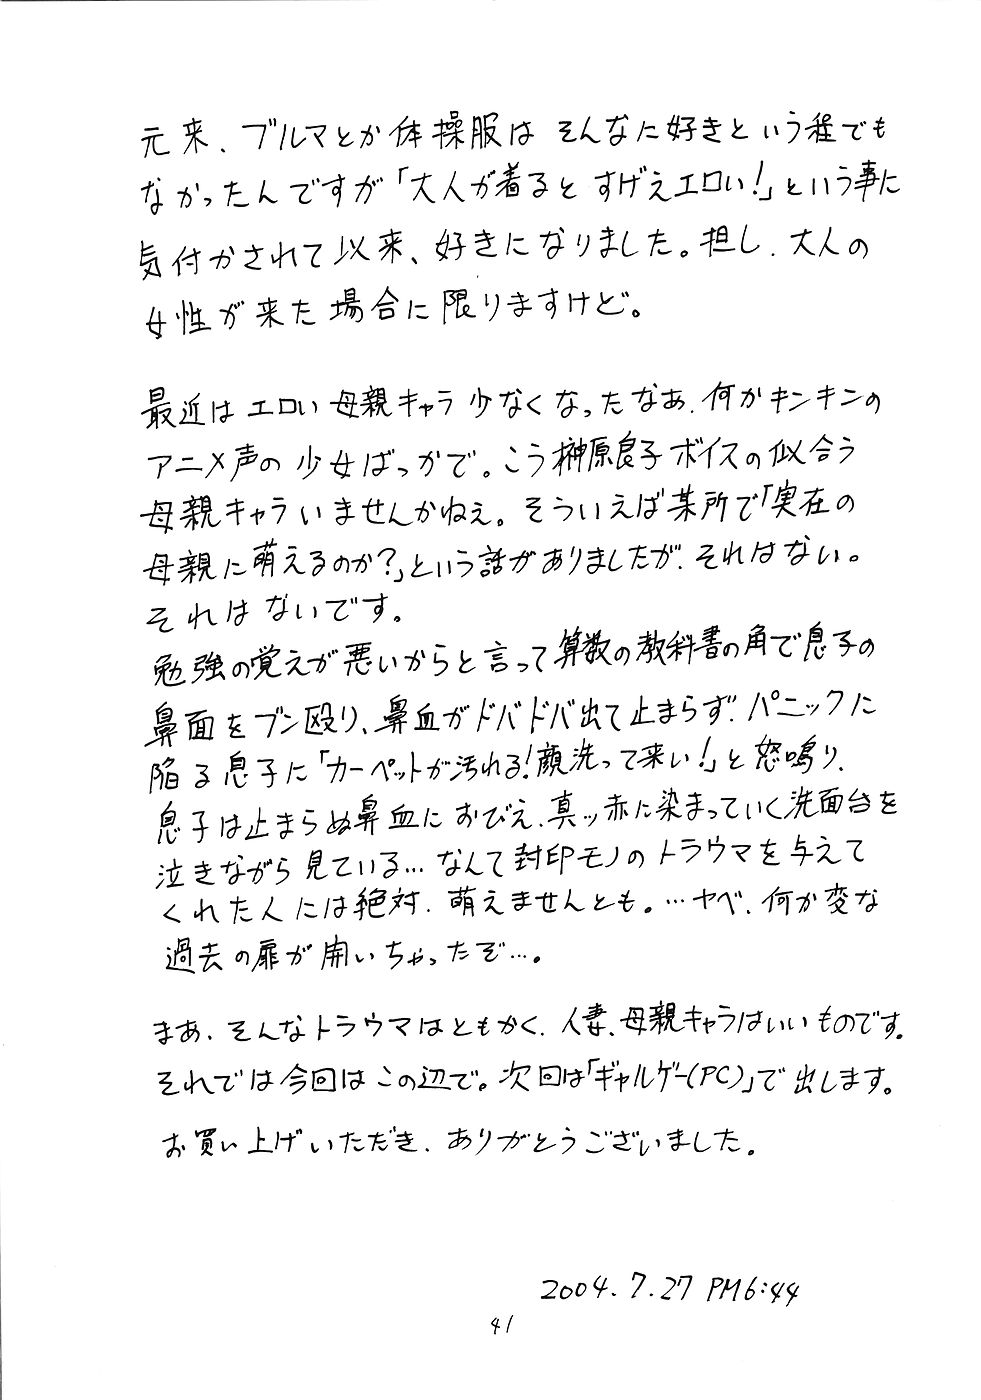 元来、ブルマとか体操服はそんなに好きという程でも
なかったんですが「大人が着るとすげえエロい!」という事に
気付かされて以来、好きになりました。担し、大人の
女性が来た場合に限りますけど。
最近はエロい母親キャラ少なくなったなあ、何かキンキンの
アニメ声の少女ばっかで。こう榊原良子ボイスの似合う
母親キャラいませんかねぇ。そういえば某所で「実在の
母親に萌えるのか?」という話がありましたが、それはない。
それはないです。
勉強の覚えが悪いからと言って算数の教科書の角で息子の
鼻面をブン殴り、鼻血がドバドバ出て止まらず、パニックに
陥る息子に「カーペットが汚れる!顔洗って来い!」と怒鳴り、
息子は止まらぬ鼻血におびえ、真ッ赤に染まっていく洗面台を
泣きながら見ている…なんて封印モノのトラウマを与えて
くれた人には絶対、萌えませんとも。…ヤベ、何か変な
過去の扉が開いちゃったぞ…。
まあ、そんなトラウマはともかく、人妻、母親キャラはいいものです。
それでは今回はこの辺で。次回は「ギャルゲー(PC)」で出します。
お買い上げいただき、ありがとうございました。
2004.7.27 PM6:44
41